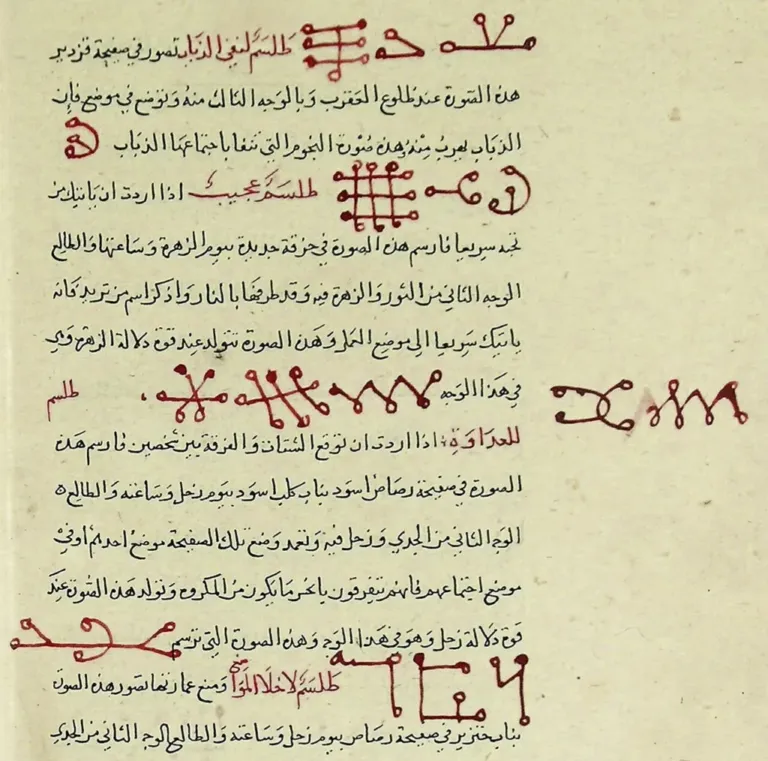 طلسم لنفي الذباب تصور في صفيحة قزدير
هذه الصورة عند طلوع العقرب وبالوجه الثالث منه وتوضع في موضع فإن
الذباب يهرب منه وهذه صورة النجوم التي تنفا باجتماعها الذباب
طلسم عجيب اذا اردت ان ياتيك من
تحبه سريعا فارسم هذه الصورة في خرقة جديدة بيوم الزهرة وساعتها والطالع
الوجه الثاني من الثور والزهرة فيه وقد طرفها بالنار واذكر اسم من تريد فانه
ياتيك سريعا الى موضع العمل وهذه الصورة تتولد عند قوة دلالة الزهرة وهي
في هذا الوجه طلسم
للعداوة اذا اردت ان توقع الشتات والفرقة بين شخصين فارسم هذه
الصورة في صفيحة رصاص اسود بناب كلب اسود بيوم زحل وساعته والطالع
الوجه الثاني من الجدي وزحل فيه وتعمد وضع تلك الصفيحة موضع احدهم أو في
موضع اجتماعهم فانهم يتفرقون باشر ما يكون من المكروه وتولد هذه الصورة عند
قوة دلالة زحل وهو في هذا الوجه وهذه الصورة التي ترسم
طلسم لاخلا المواضع ومنع عمارتها تصور هذه الصورة
بناب خنزير في صفيحة رصاص بيوم زحل وساعته والطالع الوجه الثاني من الجدي